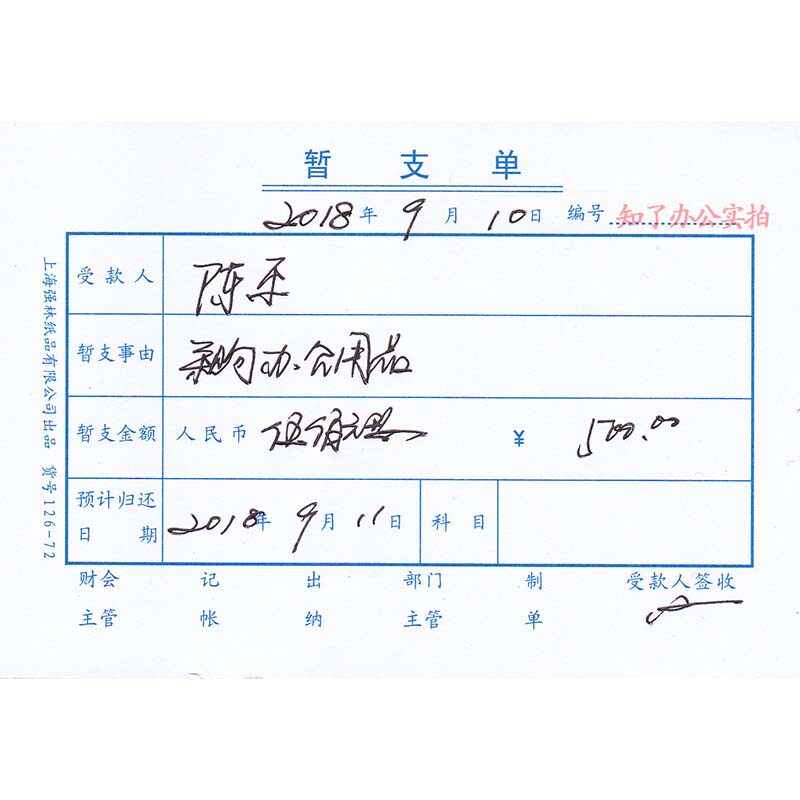 暂支单
2018年9月10日 编号 知了办公实拍
受款人 陈平
暂支事由 采购办公用品
暂支金额 人民币 伍佰元整 ¥ 500.00
预计归还日期 2018年9月11日 科目
财会主管 记帐 出纳 部门主管 制单 受款人签收
上海强林纸品有限公司出品 货号126-72